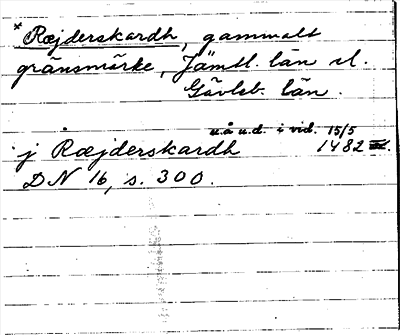 *Ræjderskardh, gammalt
gränsmärke, Jämtl. län el.
Gävleb. län.
u.å u.d. i vid. 15/5
j Ræjderskardh 1482
DN 16, s. 300.